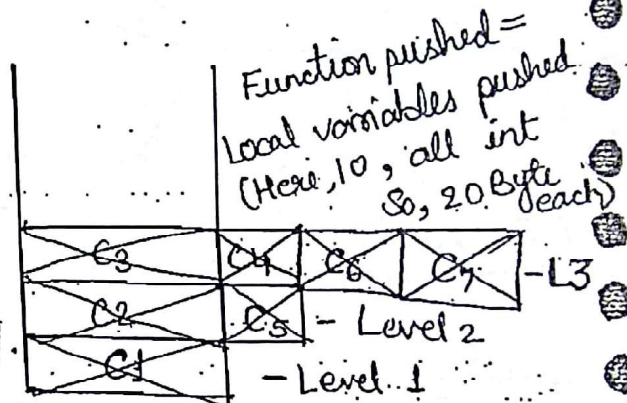 Function pushed =
Local variables pushed
(Here, 10, all int
So, 20 Byte each)
C3 C4 C6 C7 - L3
C2 C5 - Level 2
C1 - Level 1